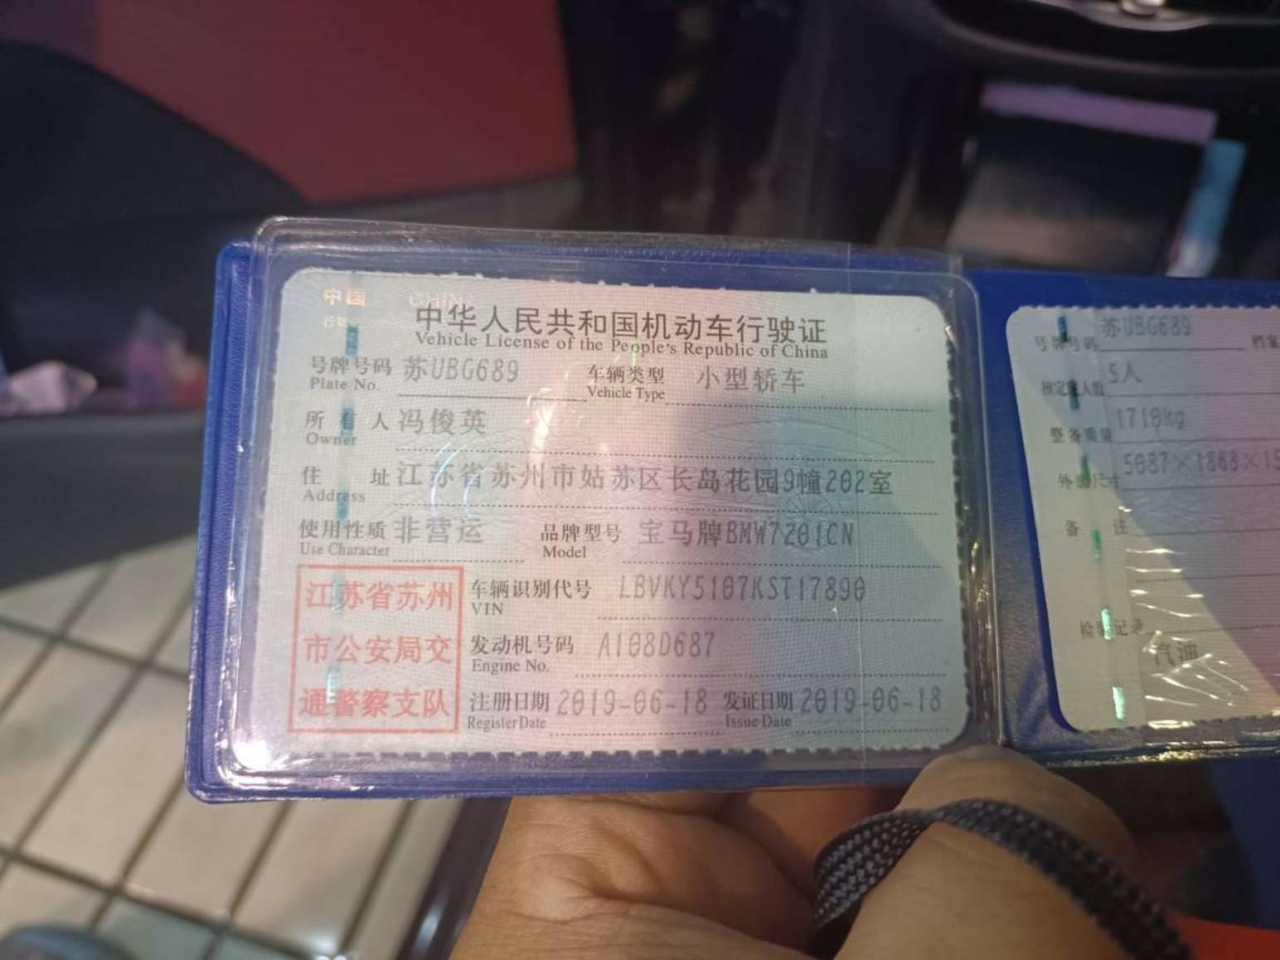 中国 CHINA
中华人民共和国机动车行驶证
Vehicle License of the People's Republic of China
号牌号码 苏UBG689 车辆类型 小型轿车
Plate No. Vehicle Type
所有人 冯俊英
Owner
住址 江苏省苏州市姑苏区长岛花园9幢202室
Address
使用性质 非营运 品牌型号 宝马牌BMW7201CN
Use Character Model
江苏省苏州
市公安局交
通警察支队
车辆识别代号 LBVKY5107KST17890
VIN
发动机号码 A108D687
Engine No.
注册日期 2019-06-18 发证日期 2019-06-18
Register Date Issue Date
号牌号码 苏UBG689 档案
核定载人数 5人
整备质量 1710kg
外廓尺寸 5087×1868×15
备注
检验记录
汽油